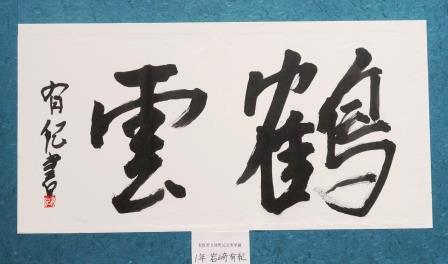 鶴雲
有紀書
1年 岩崎有紀